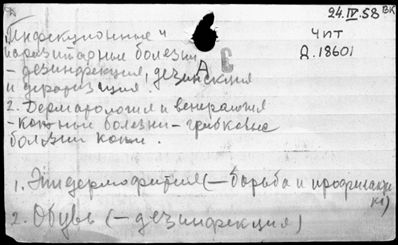 24.IV.58 ВК
Инфекционные и
паразитарные болезни
- дезинфекция, дезинсекция
и дератизация.
Чит
Д.18601
А С
2. Дерматология и венерология
- кожные болезни - грибковые
болезни кожи.
1. Эпидермофития (- борьба и профилакти
ка)
2. Обувь (- дезинфекция)